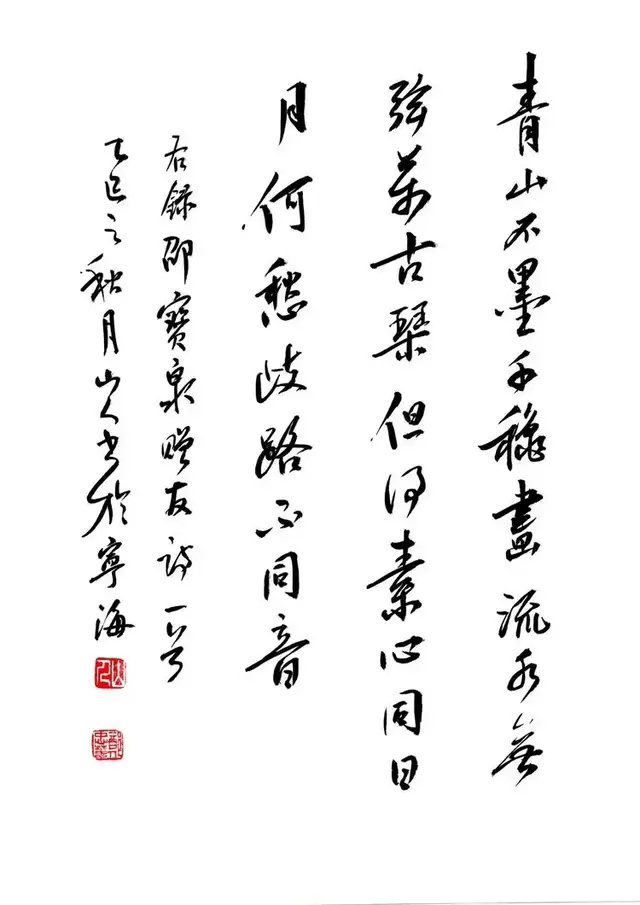 青山不墨千秋畫流水無
弦萬古琴但得素心同日
月何愁歧路不同音
右録邵寶泉贈友詩一首
乙巳之秋月山人书於寧海
山人